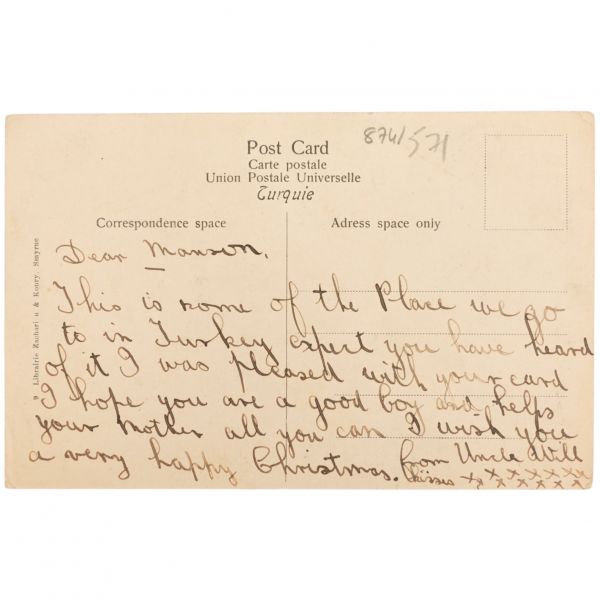 874/571
Post Card
Carte postale
Union Postale Universelle
Turquie
Correspondence space
Adress space only
9 Librairie Zachariou & Koury, Smyrne
Dear Manson.
This is some of the Place we go
to in Turkey expect you have heard
of it I was pleased with your card
I hope you are a good boy and helps
your mother all you can I wish you
a very happy Christmas. from Uncle Will
Kisses x x x x x x x
x x x x x x